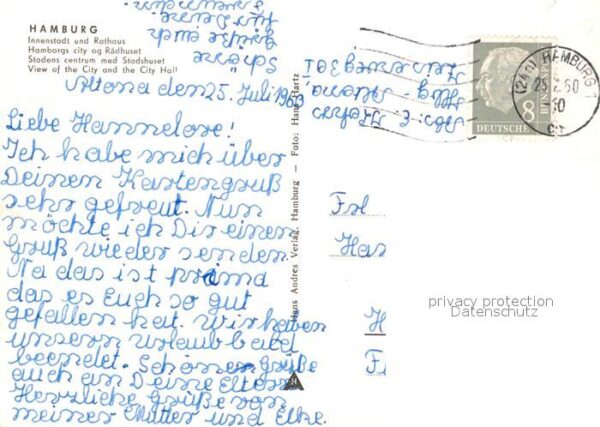 HAMBURG
Innenstadt und Rathaus
Hamborgs city og Rådhuset
Stadens centrum med Stadshuset
View of the City and the City Hall
Altona den 25. Juli 1960
Liebe Hannelore!
Ich habe mich über
Deinen Kartengruß
sehr gefreut. Nun
möchte ich Dir einen
Gruß wieder senden.
Na das ist prima
das es Euch so gut
gefallen hat. Wir haben
unsern Urlaub bald
beendet. Schöne Grüße
auch an Deine Eltern
Herzliche Grüße von
meiner Mutter und Elke.
schöne
Grüße auch
für Deine
Abs: E.
Hbg - Altona
Hans Andres Verlag, Hamburg – Foto: Hans Hartz
(24a) HAMBURG 1
25.7.60
10
8
DEUTSCHE BUNDESPOST
Frl
Han
H
F
privacy protection
Datenschutz